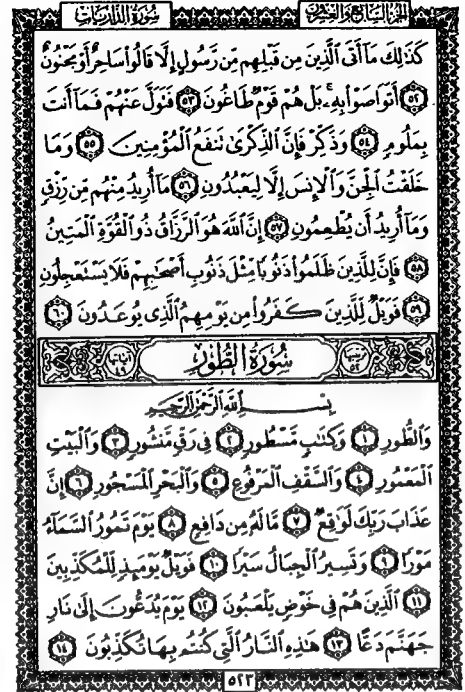 سُورَةُ الذَّارِيَاتِ
الجزء السابع والعشرون
كَذَٰلِكَ مَآ أَتَى ٱلَّذِينَ مِن قَبْلِهِم مِّن رَّسُولٍ إِلَّا قَالُوا۟ سَاحِرٌ أَوْ مَجْنُونٌ
٥٢ أَتَوَاصَوْا۟ بِهِۦ ۚ بَلْ هُمْ قَوْمٌ طَاغُونَ ٥٣ فَتَوَلَّ عَنْهُمْ فَمَآ أَنتَ
بِمَلُومٍ ٥٤ وَذَكِّرْ فَإِنَّ ٱلذِّكْرَىٰ تَنفَعُ ٱلْمُؤْمِنِينَ ٥٥ وَمَا
خَلَقْتُ ٱلْجِنَّ وَٱلْإِنسَ إِلَّا لِيَعْبُدُونِ ٥٦ مَآ أُرِيدُ مِنْهُم مِّن رِّزْقٍ
وَمَآ أُرِيدُ أَن يُطْعِمُونِ ٥٧ إِنَّ ٱللَّهَ هُوَ ٱلرَّزَّاقُ ذُو ٱلْقُوَّةِ ٱلْمَتِينُ
٥٨ فَإِنَّ لِلَّذِينَ ظَلَمُوا۟ ذَنُوبًا مِّثْلَ ذَنُوبِ أَصْحَٰبِهِمْ فَلَا يَسْتَعْجِلُونِ
٥٩ فَوَيْلٌ لِّلَّذِينَ كَفَرُوا۟ مِن يَوْمِهِمُ ٱلَّذِى يُوعَدُونَ ٦٠
ترتيبها ٥٢
سُورَةُ الطُّورِ
آياتها ٤٩
بِسْمِ ٱللَّهِ ٱلرَّحْمَٰنِ ٱلرَّحِيمِ
وَٱلطُّورِ ١ وَكِتَٰبٍ مَّسْطُورٍ ٢ فِى رَقٍّ مَّنشُورٍ ٣ وَٱلْبَيْتِ
ٱلْمَعْمُورِ ٤ وَٱلسَّقْفِ ٱلْمَرْفُوعِ ٥ وَٱلْبَحْرِ ٱلْمَسْجُورِ ٦ إِنَّ
عَذَابَ رَبِّكَ لَوَٰقِعٌ ٧ مَّا لَهُۥ مِن دَافِعٍ ٨ يَوْمَ تَمُورُ ٱلسَّمَآءُ
مَوْرًا ٩ وَتَسِيرُ ٱلْجِبَالُ سَيْرًا ١٠ فَوَيْلٌ يَوْمَئِذٍ لِّلْمُكَذِّبِينَ
١١ ٱلَّذِينَ هُمْ فِى خَوْضٍ يَلْعَبُونَ ١٢ يَوْمَ يُدَعُّونَ إِلَىٰ نَارِ
جَهَنَّمَ دَعًّا ١٣ هَٰذِهِ ٱلنَّارُ ٱلَّتِى كُنتُم بِهَا تُكَذِّبُونَ ١٤
٥٢٣